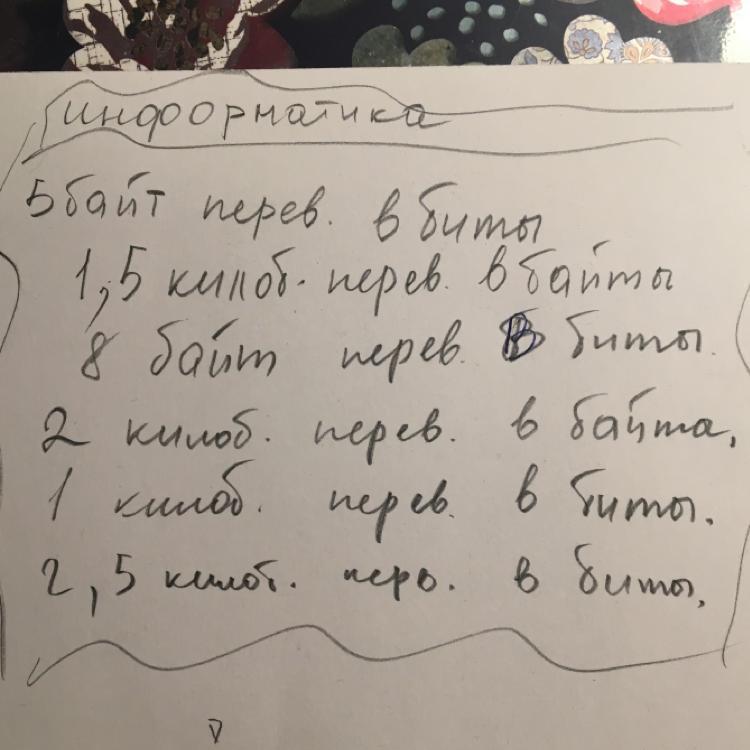 информатика
5 байт перев. в биты
1,5 килоб. перев. в байты
8 байт перев. В биты.
2 килоб. перев. в байта,
1 килоб. перев. в биты.
2,5 килоб. перв. в биты,